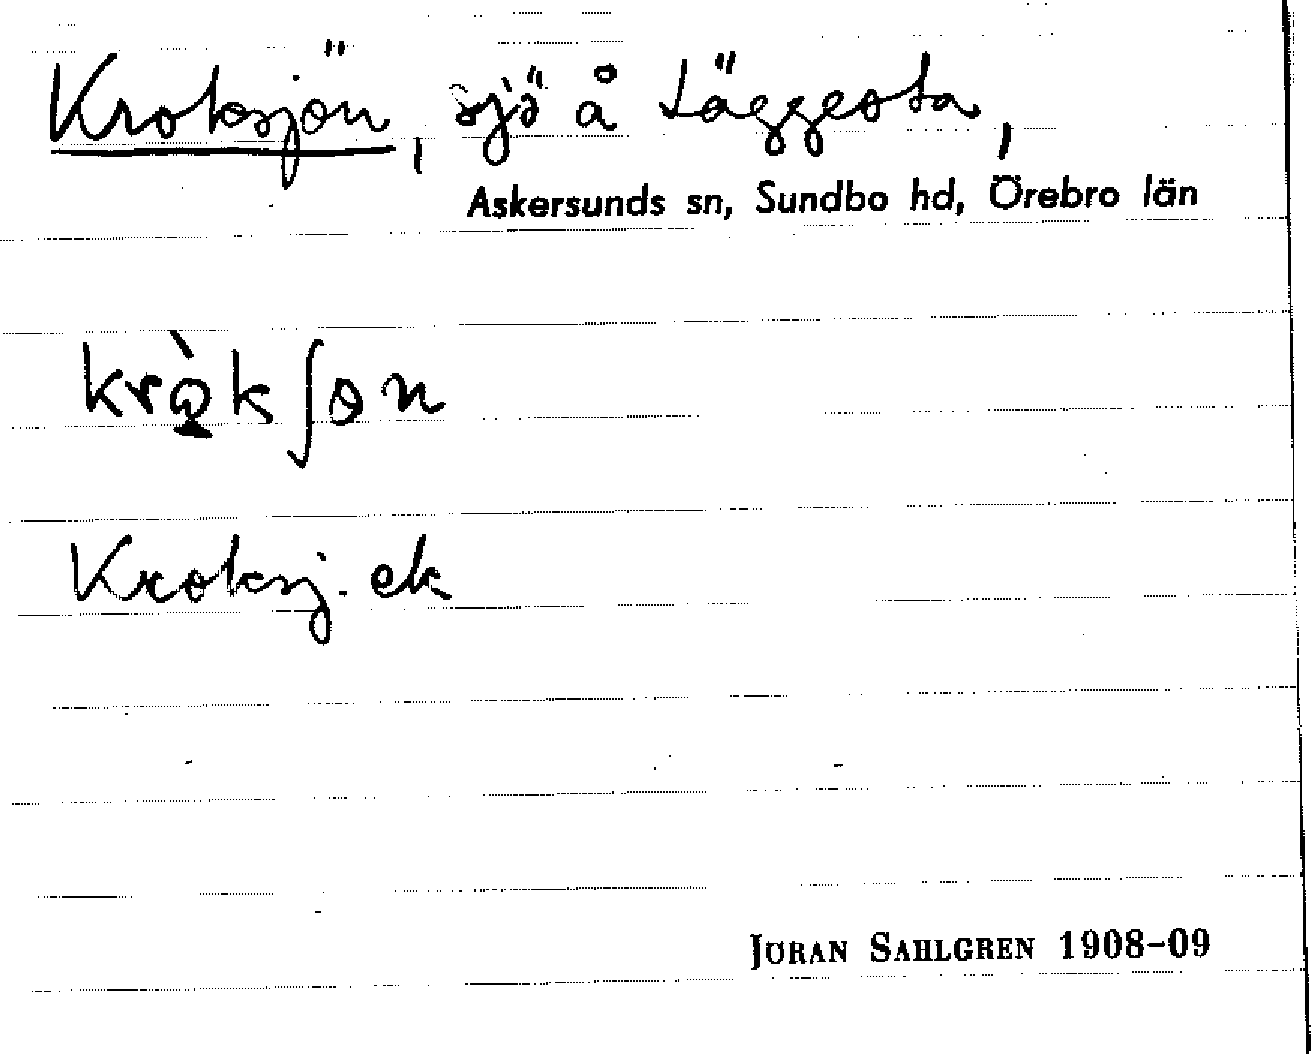 Kroksjön, sjö å Läggesta,
Askersunds sn, Sundbo hd, Örebro län
krò̤kʃɵn
Kroksj. ek
JÖRAN SAHLGREN 1908-09